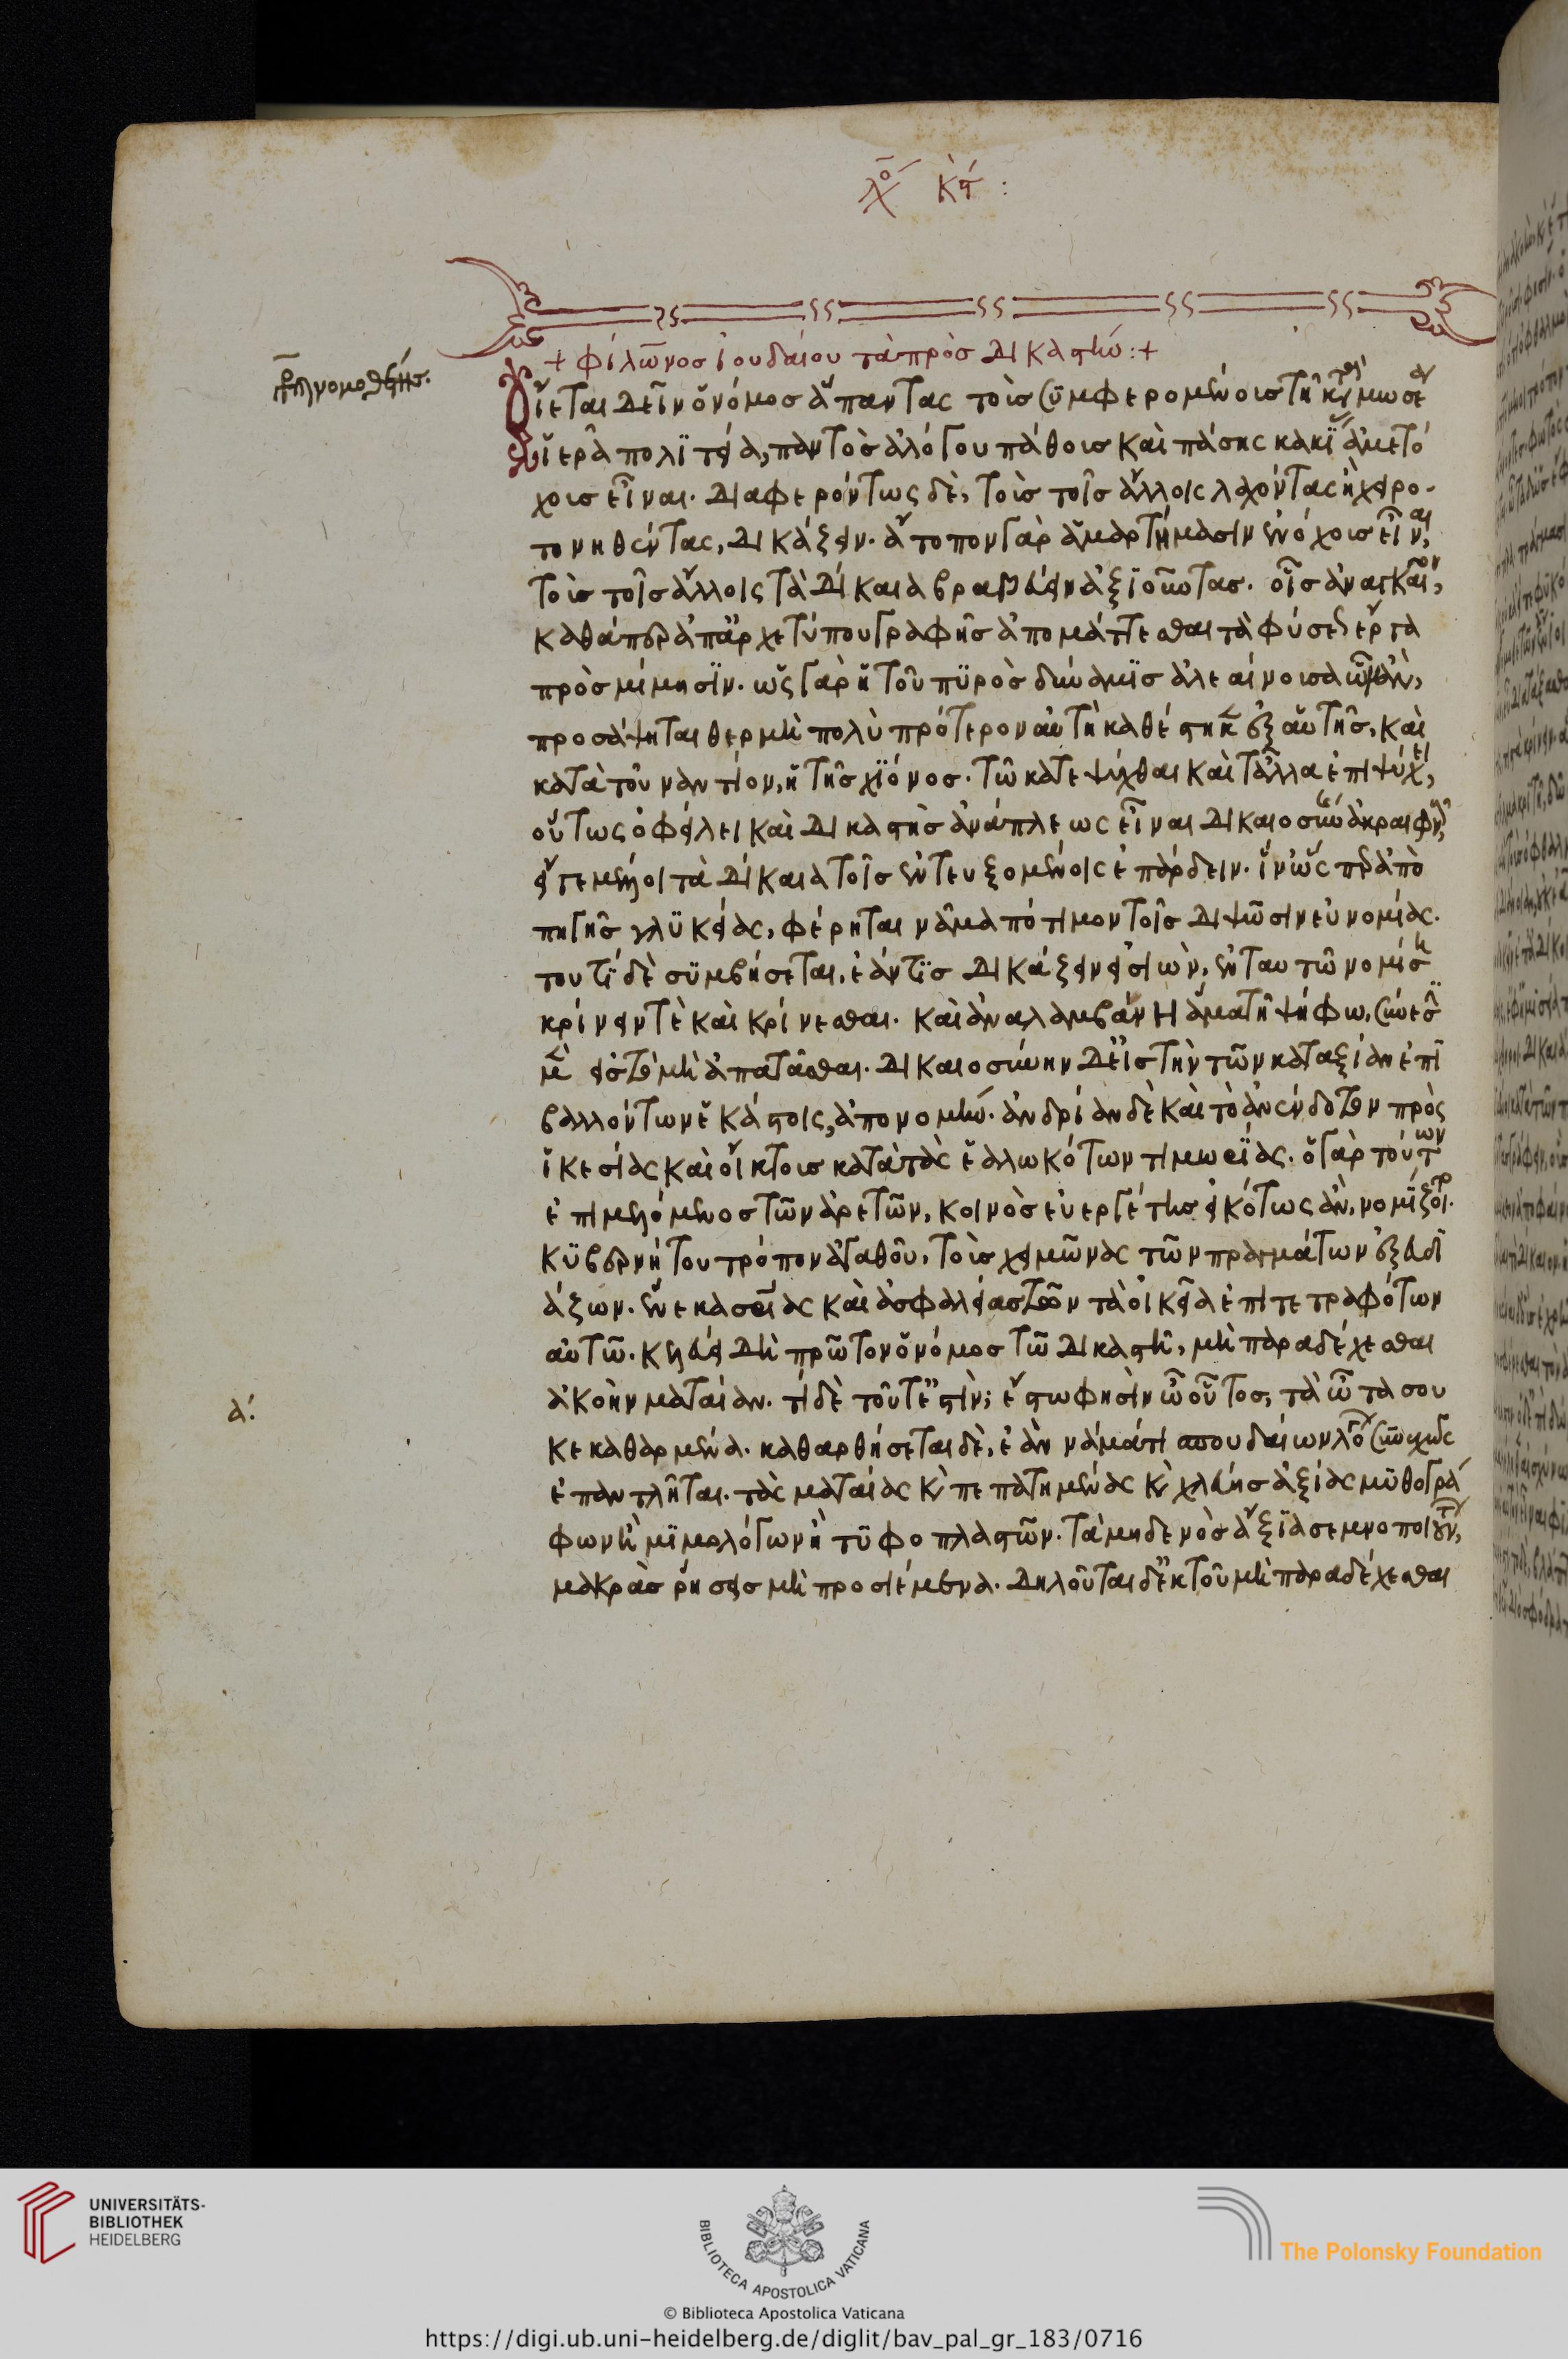 λό κϛ :
+ φίλωνος ἰουδαίου τὰ πρὸς δικαστήν :+
περὶ νομοθέτης.
Οἴεται δεῖν ὁ νόμος ἅπαντας τοὺς συμφερομένους τῆ κατὰ μωσέα
ἱερᾶ πολιτεία, παντὸς ἀλόγου πάθους καὶ πάσης κακίας ἀμετό
χους εἶναι. διαφερόντως δὲ, τοὺς τοῖς ἄλλοις λαχόντας ἢ χειρο-
τονηθέντας, δικάζειν. ἄτοπον γὰρ ἁμαρτήμασιν ἐνόχους εἶναι,
τοὺς τοῖς ἄλλοις τὰ δίκαια βραβεύειν ἀξιοῦντας. οἷς ἀναγκαῖον,
καθάπερ ἀπ' ἀρχετύπου γραφῆς ἀπομάττεσθαι τὰ φύσεως ἔργα
πρὸς μίμησιν. ὡς γὰρ ἡ τοῦ πυρὸς δύναμις ἀλεαίνουσα ὧν ἂν,
προσάψηται θερμὴ πολὺ πρότερον αὐτὴ καθέστηκεν ἐξ αὑτῆς, καὶ
κατὰ τοὐναντίον, ἡ τῆς χιόνος. τῶ κατεψύχθαι καὶ τἄλλα ἐπιψύχει,
οὕτως ὀφείλει καὶ δικαστὴς ἀνάπλεως εἶναι δικαιοσύνης ἀκραιφνοῦς,
εἴγε μέλλοι τὰ δίκαια τοῖς ἐντευξομένοις ἐπάρδειν. ἵν' ὥσπερ ἀπὸ
πηγῆς γλυκείας, φέρηται νᾶμα πότιμον τοῖς διψῶσιν εὐνομίας.
τουτὶ δὲ συμβήσεται, ἐάν τις δικάζειν εἰσιὼν, ἐν ταυτῶ νομίση
κρίνειν τὲ καὶ κρίνεσθαι. καὶ ἀναλαμβάνη ἅμα τῆ ψήφω, σύνεσιν
μὲν εἰς τὸ μὴ ἀπατᾶσθαι. δικαιοσύνην δ' εἰς τὴν τῶν κατ' αξίαν ἐπι
βαλλόντων ἑκάστοις, ἀπονομήν. ἀνδρίαν δὲ καὶ τὸ ἀνένδοτον πρὸς
ἱκεσίας καὶ οἴκτους κατὰ τὰς ἑαλωκότων τιμωρίας. ὁ γὰρ τούτων
ἐπιμελόμενος τῶν ἀρετῶν, κοινὸς εὐεργέτης εἰκότως ἂν, νομίζοιτο.
κυβερνήτου τρόπον ἀγαθοῦ, τοὺς χειμῶνας τῶν πραγμάτων ἐξευδι
άζων. ἕνεκα σωτηρίας καὶ ἀσφαλείας τῶν τὰ οἰκεῖα ἐπιτετραφότων
αὐτῶ. κελεύει δὴ πρῶτον ὁ νόμος τῶ δικαστῆ, μὴ παραδέχεσθαι
ἀκοὴν ματαίαν. τί δὲ τοῦτ' ἔστιν; ἔστω φησὶν ὦ οὗτος, τὰ ὦτα σου
α.
κεκαθαρμένα. καθαρθήσεται δὲ, ἐὰν νάμασι σπουδαίων λόγων συνεχῶς
ἐπαντλῆται. τὰς ματαίας καὶ πεπατημένας καὶ χλεύης ἀξίας μυθογρά
φων ἢ μιμολόγων ἢ τυφοπλαστῶν. τὰ μηδενὸς ἄξια σεμνοποιούντων,
μακρὰς ῥήσεις μὴ προσιέμενα. δηλοῦται δ' ἐκ τοῦ μὴ παραδέχεσθαι
UNIVERSITÄTS-
BIBLIOTHEK
HEIDELBERG
BIBLIOTECA APOSTOLICA VATICANA
The Polonsky Foundation
© Biblioteca Apostolica Vaticana
https://digi.ub.uni-heidelberg.de/diglit/bav_pal_gr_183/0716